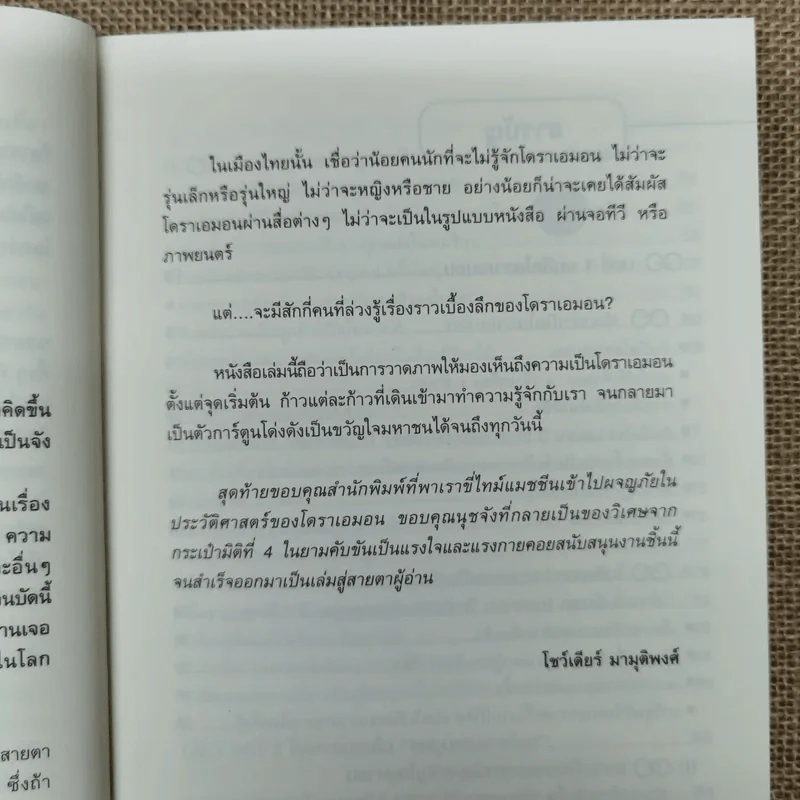 คิดขึ้น
เป็นจัง
นเรื่อง
ความ
ะอื่นๆ
นบัดนี้
านเจอ
ในโลก
สายตา
ซึ่งถ้า
ในเมืองไทยนั้น เชื่อว่าน้อยคนนักที่จะไม่รู้จักโดราเอมอน ไม่ว่าจะ
รุ่นเล็กหรือรุ่นใหญ่ ไม่ว่าจะหญิงหรือชาย อย่างน้อยก็น่าจะเคยได้สัมผัส
โดราเอมอนผ่านสื่อต่างๆ ไม่ว่าจะเป็นในรูปแบบหนังสือ ผ่านจอทีวี หรือ
ภาพยนตร์
แต่....จะมีสักกี่คนที่ล่วงรู้เรื่องราวเบื้องลึกของโดราเอมอน?
หนังสือเล่มนี้ถือว่าเป็นการวาดภาพให้มองเห็นถึงความเป็นโดราเอมอน
ตั้งแต่จุดเริ่มต้น ก้าวแต่ละก้าวที่เดินเข้ามาทำความรู้จักกับเรา จนกลายมา
เป็นตัวการ์ตูนโด่งดังเป็นขวัญใจมหาชนได้จนถึงทุกวันนี้
สุดท้ายขอบคุณสำนักพิมพ์ที่พาเราขี่ไทม์แมชชีนเข้าไปผจญภัยใน
ประวัติศาสตร์ของโดราเอมอน ขอบคุณนุชจังที่กลายเป็นของวิเศษจาก
กระเป๋ามิติที่ 4 ในยามคับขันเป็นแรงใจและแรงกายคอยสนับสนุนงานชิ้นนี้
จนสำเร็จออกมาเป็นเล่มสู่สายตาผู้อ่าน
โชว์เดียร์ มามุติพงศ์